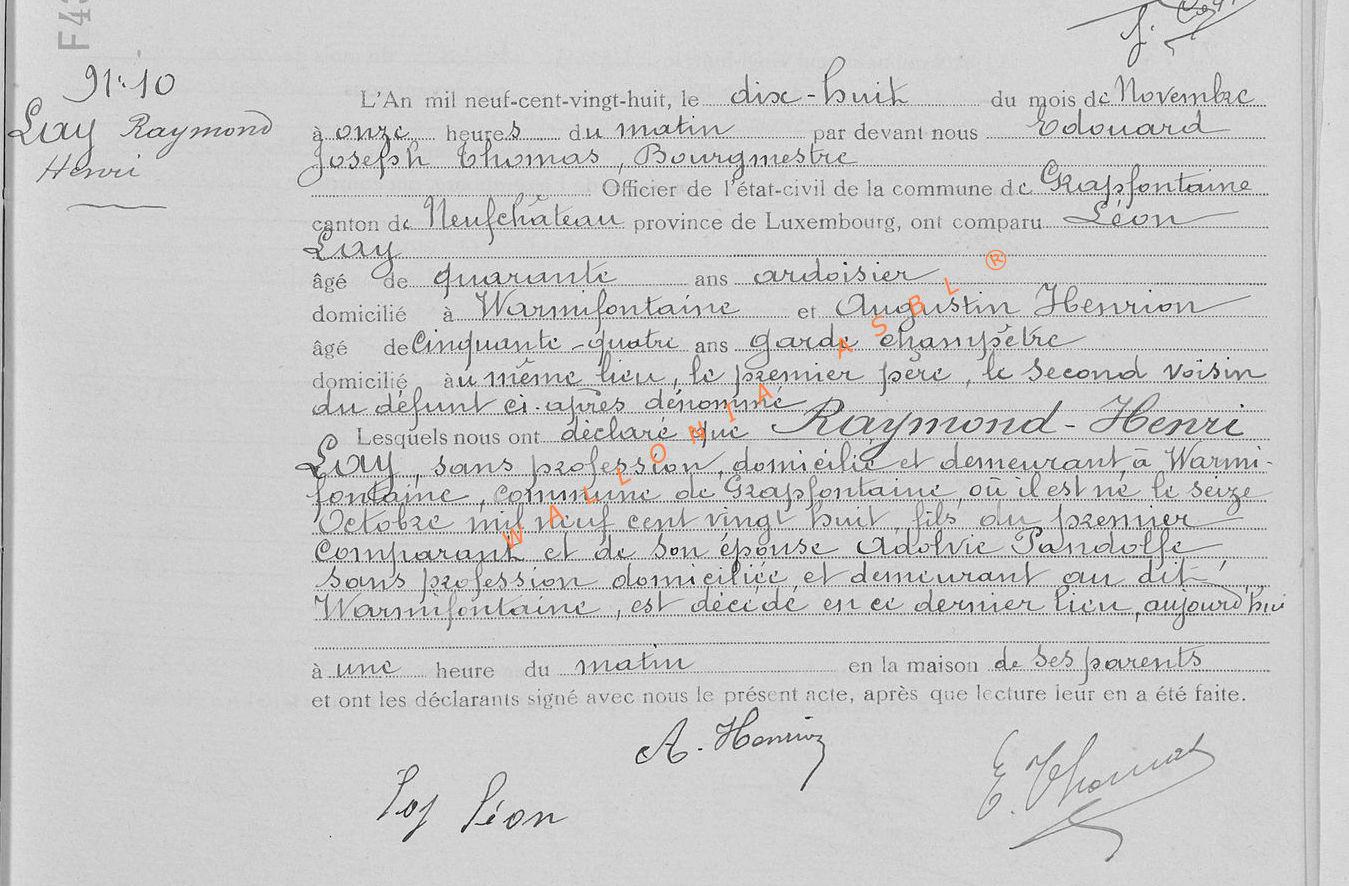 F43
J.
91.10
Lay Raymond
Henri
L'An mil neuf-cent-vingt-huit, le dix-huit du mois de Novembre
à onze heures du matin par devant nous Edouard
Joseph Thomas, Bourgmestre
Officier de l'état-civil de la commune de Grapfontaine
canton de Neufchâteau province de Luxembourg, ont comparu Léon
Lay
âgé de quarante ans ardoisier
domicilié à Warmifontaine et Augustin Henrion
âgé de Cinquante-quatre ans garde champêtre
domicilié au même lieu, le premier père, le second voisin
du défunt ci-après dénommé
Lesquels nous ont déclaré que Raymond-Henri
Lay, sans profession, domicilié et demeurant à Warmi-
fontaine, commune de Grapfontaine, où il est né le seize
Octobre mil neuf cent vingt huit, fils du premier
Comparant et de son épouse Adolvie Pandolfe
sans profession domiciliée et demeurant au dit
Warmifontaine, est décédé en ce dernier lieu, aujourd'hui
à une heure du matin en la maison de ses parents
et ont les déclarants signé avec nous le présent acte, après que lecture leur en a été faite.
A. Henrion
Lay Léon
E. Thomas
WALLONIA ASBL ®